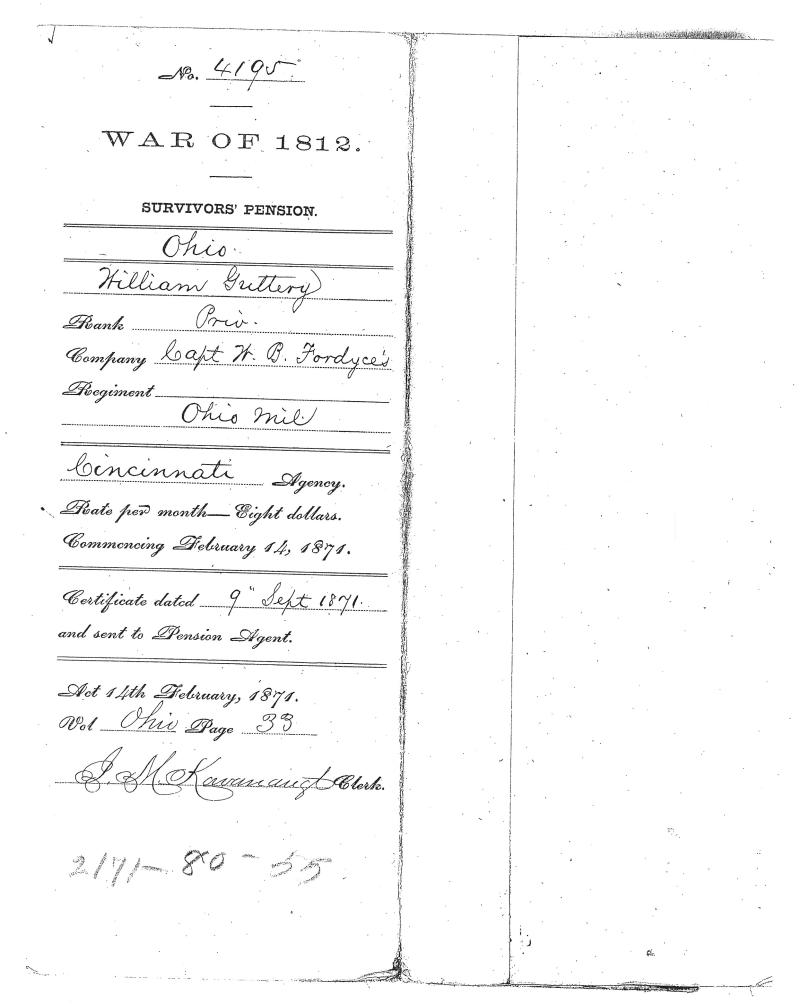 No. 4195
WAR OF 1812.
SURVIVORS' PENSION.
Ohio
William Guttery
Rank Priv.
Company Capt W. B. Fordyce's
Regiment
Ohio Mil
Cincinnati Agency.
Rate per month—Eight dollars.
Commencing February 14, 1871.
Certificate dated 9" Sept 1871.
and sent to Pension Agent.
Act 14th February, 1871.
Vol Ohio Page 33
J. M. Kavanaugh Clerk.
2171-80-55